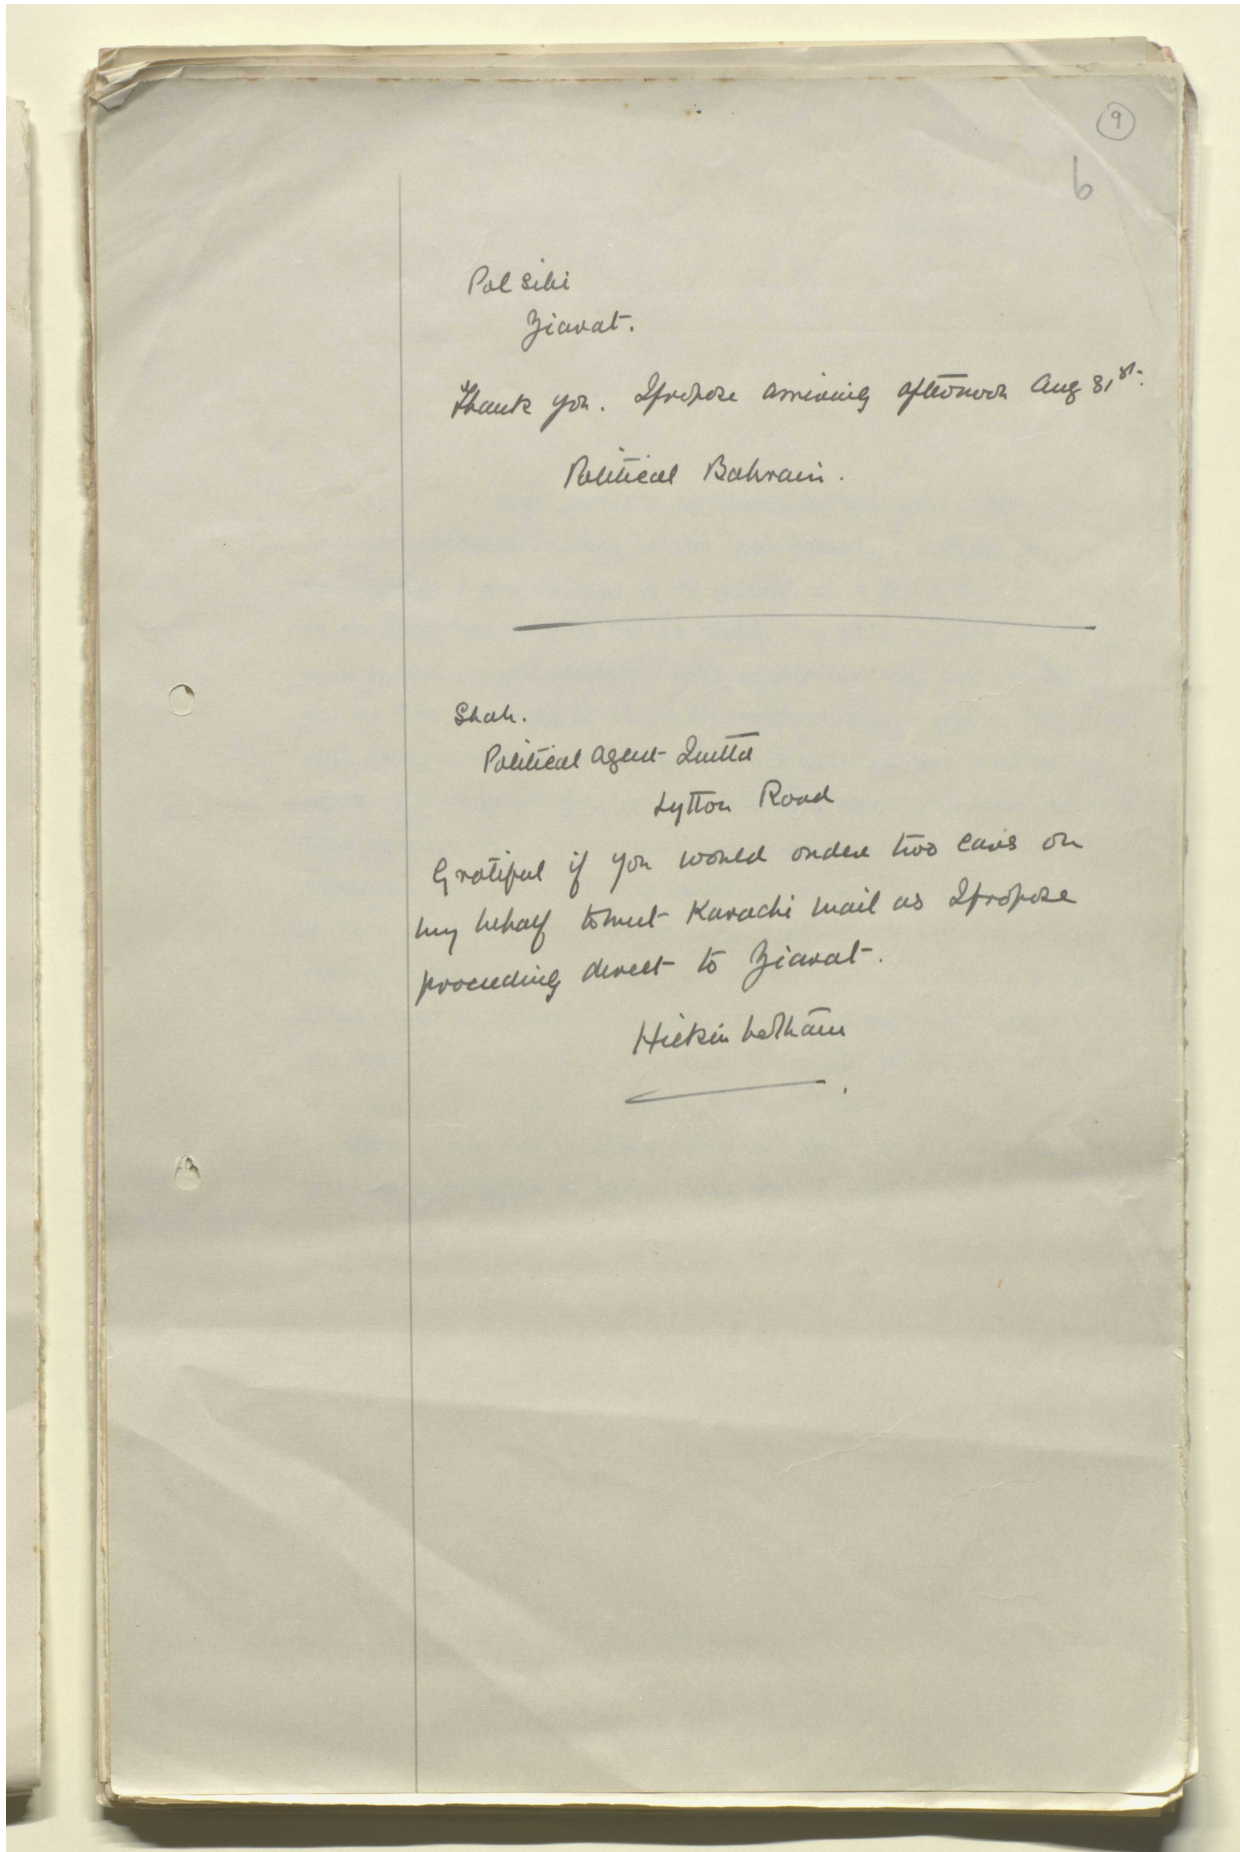 9
6
Pol Sibi
Ziarat.
Thank you. I propose arriving afternoon Aug 31st.
Political Bahrain.
Shah.
Political Agent Quetta
Lytton Road
Grateful if you would order two cars on
my behalf to meet Karachi mail as I propose
proceeding direct to Ziarat.
Hickinbotham